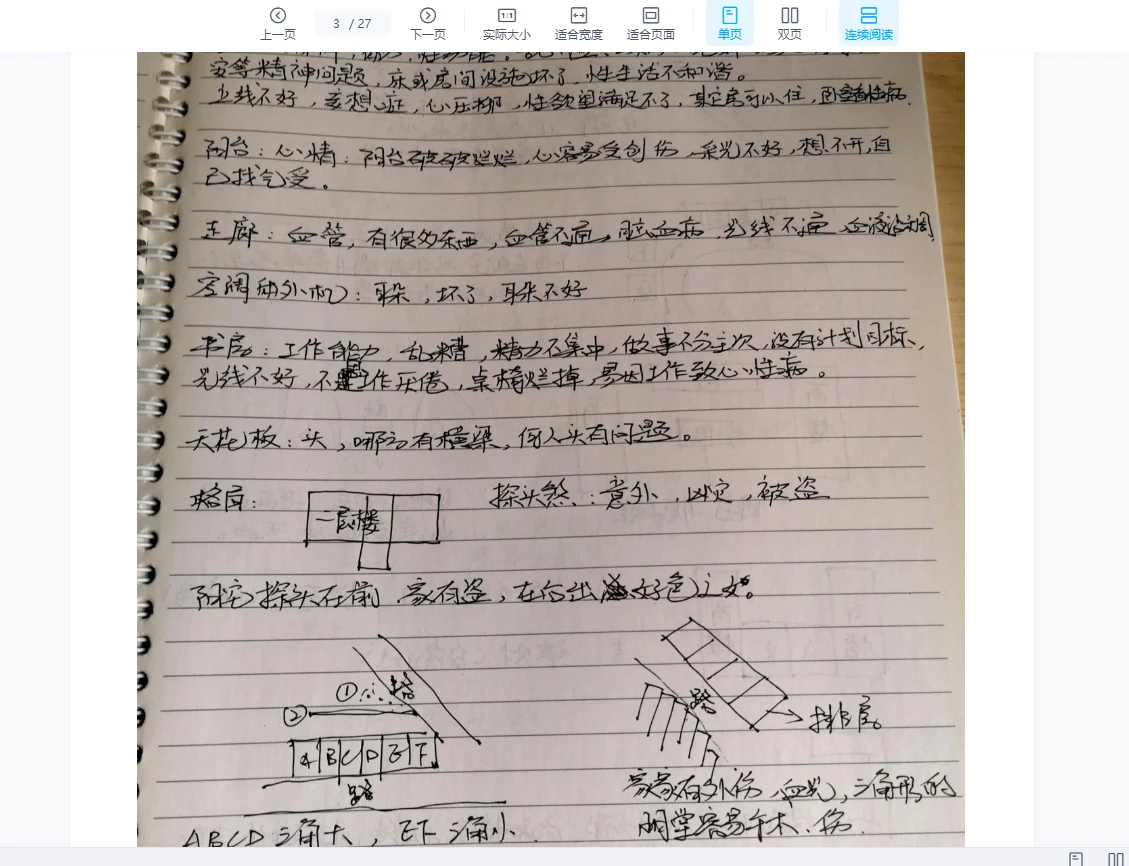 上一页
3 / 27
下一页
1:1
实际大小
适合宽度
适合页面
单页
双页
连续阅读
安等精神问题，床或房间设施坏了，性生活不和谐。
光线不好，妄想症，心压抑，性欲望满足不了，其它房可以住，
阳台：心情：阳台破破烂烂，心容易受创伤，采光不好，想不开，自
己找气受。
走廊：血管，有很多东西，血管不通，脑血病，光线不通
空调的外机：耳朵，坏了，耳朵不好
书房：工作能力，乱糟，精力不集中，做事不分主次，没有计划目标，
光线不好，工作厌倦，桌椅烂掉，易因工作致心性病。
天花板：头，哪方有横梁，何人头有问题。
二层楼
探头煞：意外，凶灾，被盗
阳宅探头在前，家有盗，在后出好色之女。
①
②
路
A B C D E F
路
路
排房
家家有外伤，血光，三角形的
明堂容易车木伤
ABCD三角大，EF三角小